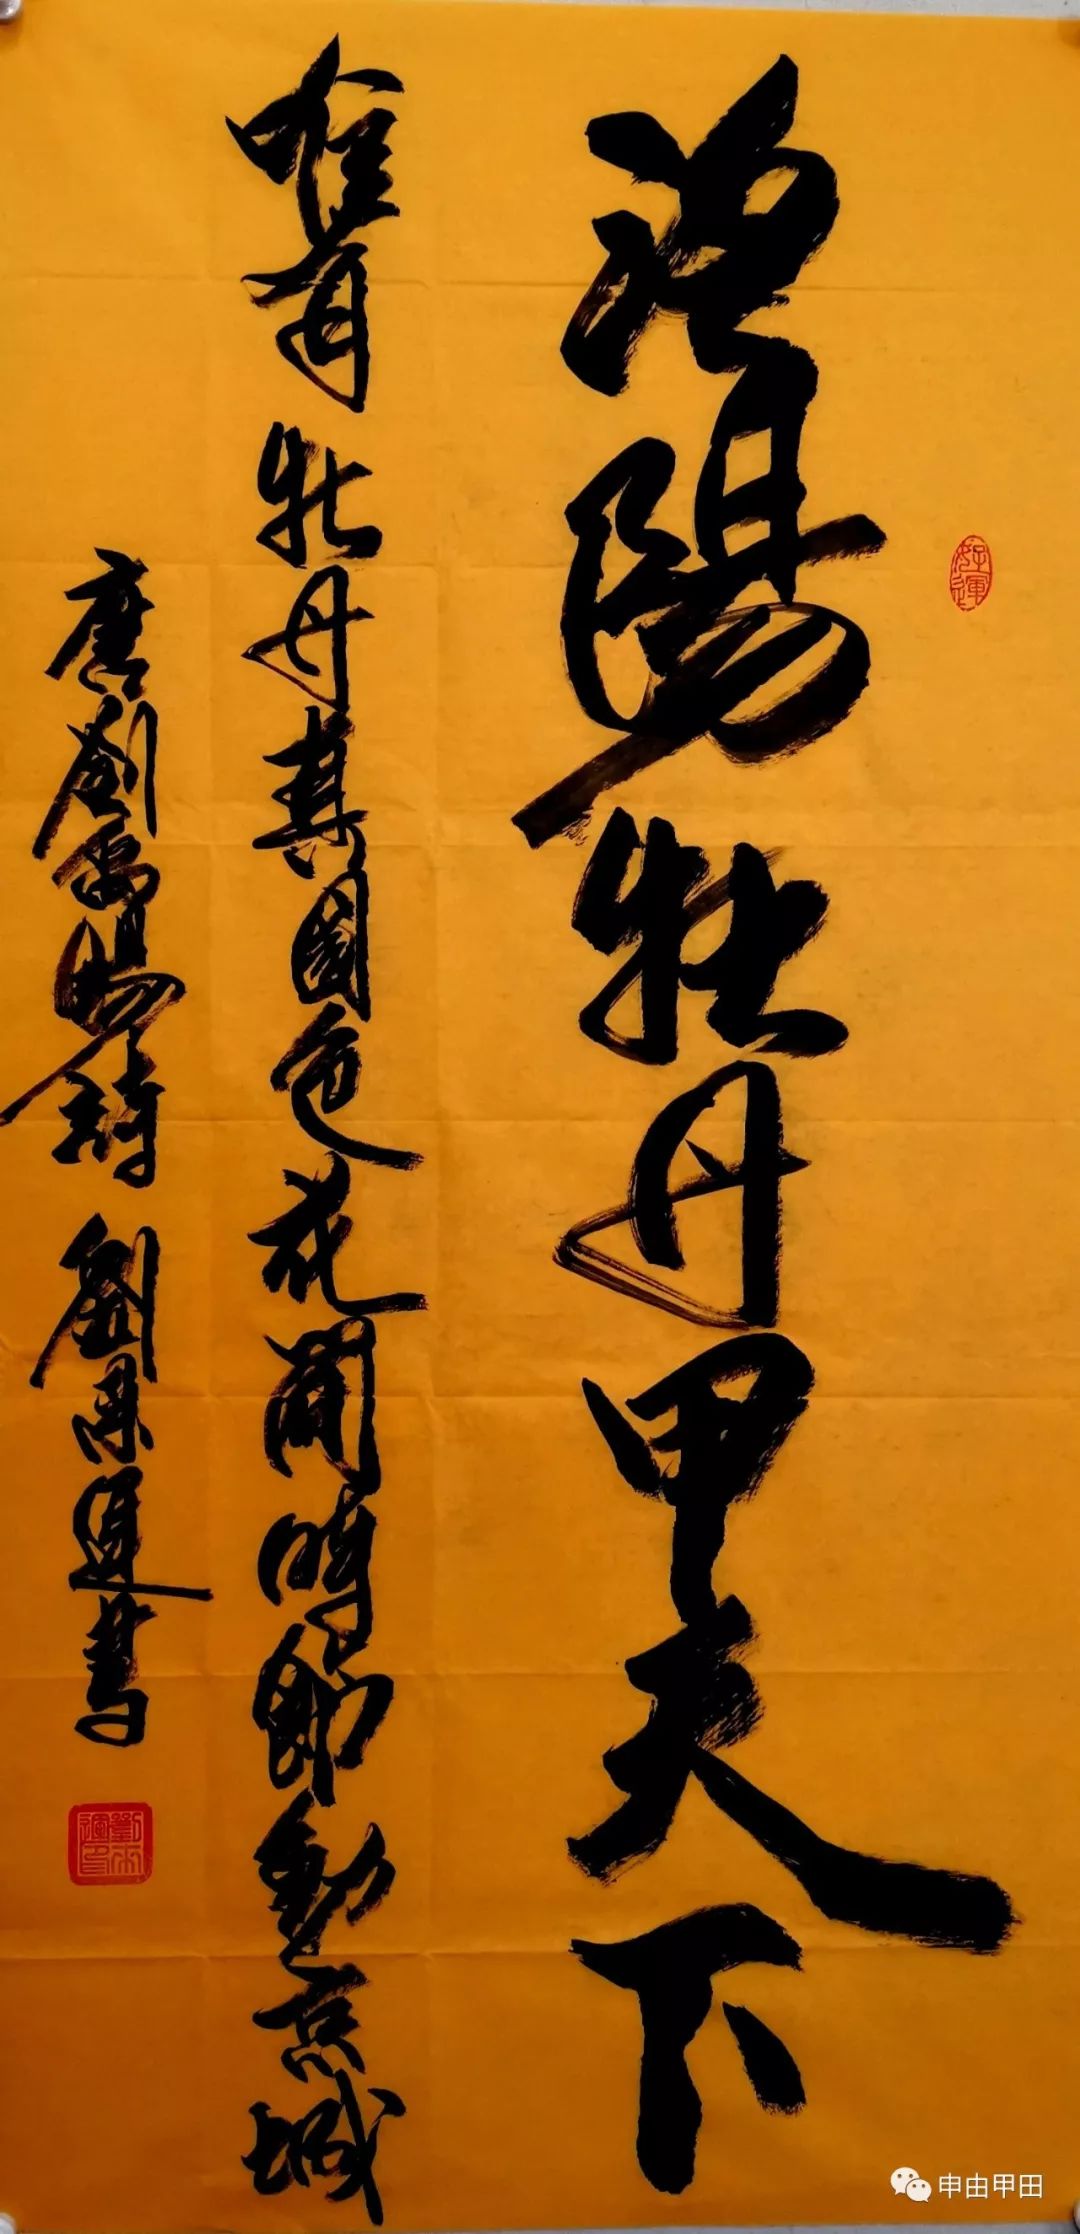 洛陽牡丹甲天下
唯有牡丹真國色花開時節動京城
唐劉禹錫詩 劉來運書
好運
劉來運印
申由甲田